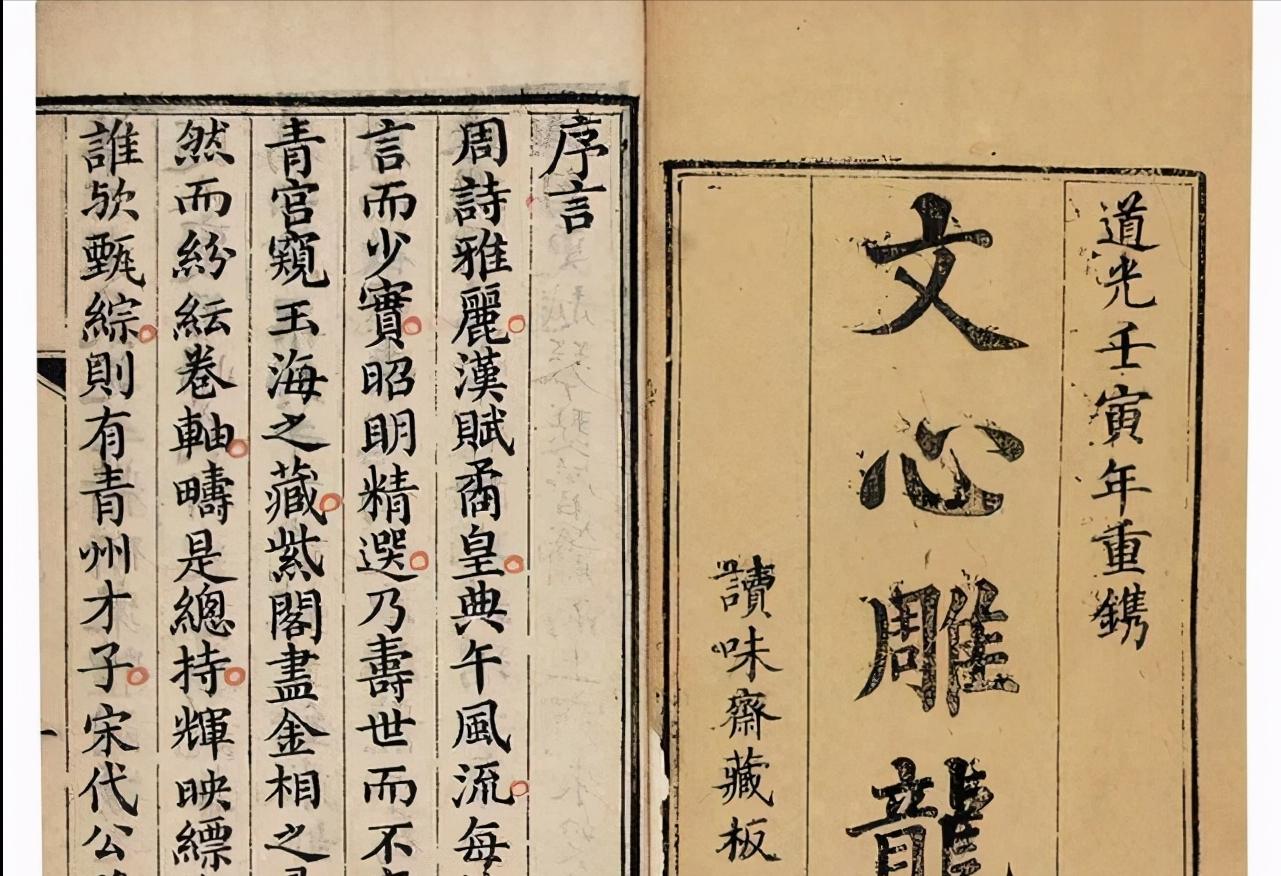 道光壬寅年重鐫
文心雕龍
讀味齋藏板
序言
周詩雅麗漢賦矞皇典午風流每
言而少實昭明精選乃壽世而不
青宮窺玉海之藏紫閣盡金相之
然而紛紜卷軸疇是總持輝映縹
誰歟甄綜則有青州才子宋代公